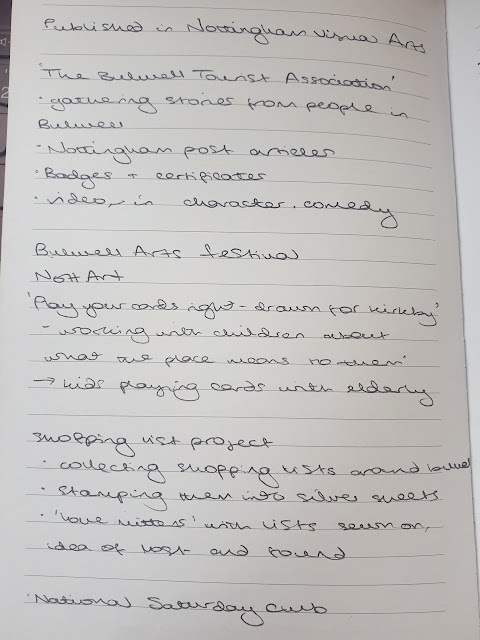 Published in Nottingham Visual Arts
'The Bulwell Tourist Association'
· gathering stories from people in
Bulwell
· Nottingham post articles
· Badges + certificates
· video, in character. comedy
Bulwell Arts festival
Nott Art
'Play your cards right - drawn for Kirkby'
- working with children about
what the place means to them'
→ kids playing cards with elderly
shopping list project
· collecting shopping lists around
· stamping them into silver sheets
· 'love mittens' with lists sewn on,
idea of lost and found
· National Saturday Club